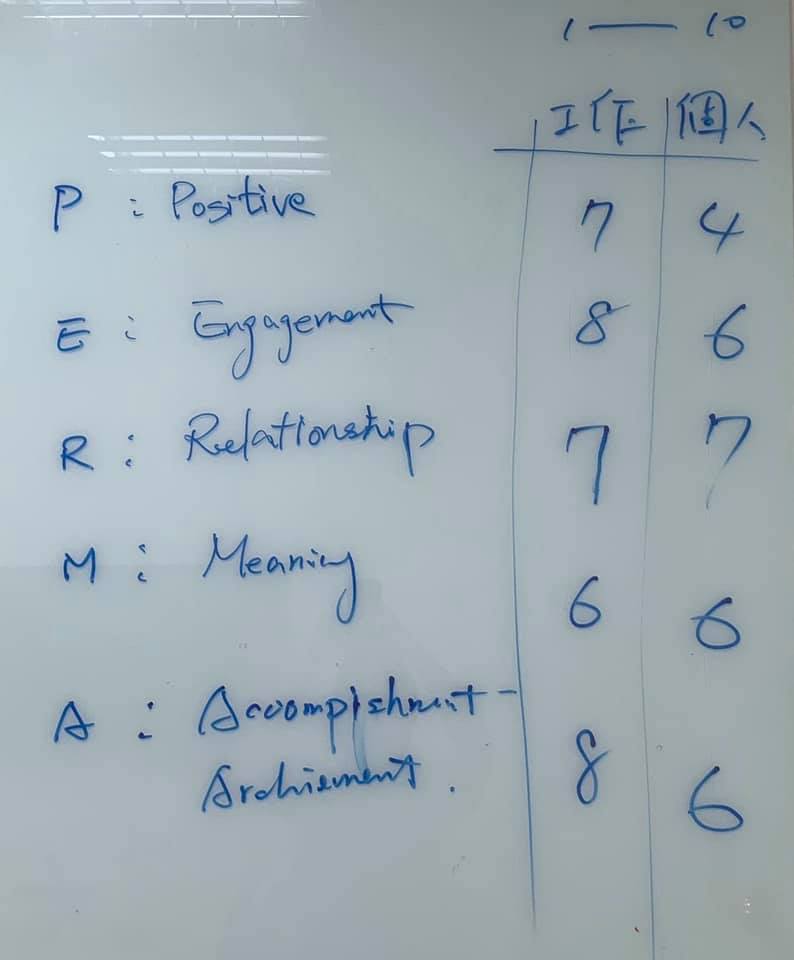 1 — 10
工作 個人
P : Positive 7 4
E : Engagement 8 6
R : Relationship 7 7
M : Meaning 6 6
A : Accomplishment - 8 6
Archiement.